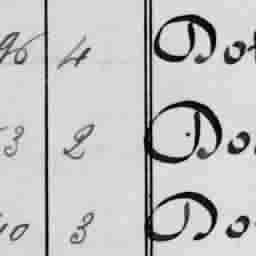 96 4 Dot
53 2 Do
40 3 Do